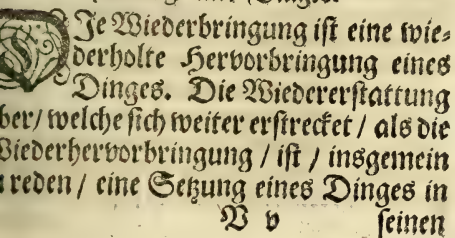 DJe Wiederbringung iſt eine wie⸗
derholte Hervorbringung eines
Dinges. Die Wiedererſtattung
ber/ welche ſich weiter erſtrecket / als die
Wiederhervorbringung / iſt / insgemein
u reden / eine Setzung eines Dinges in
V v ſeinen